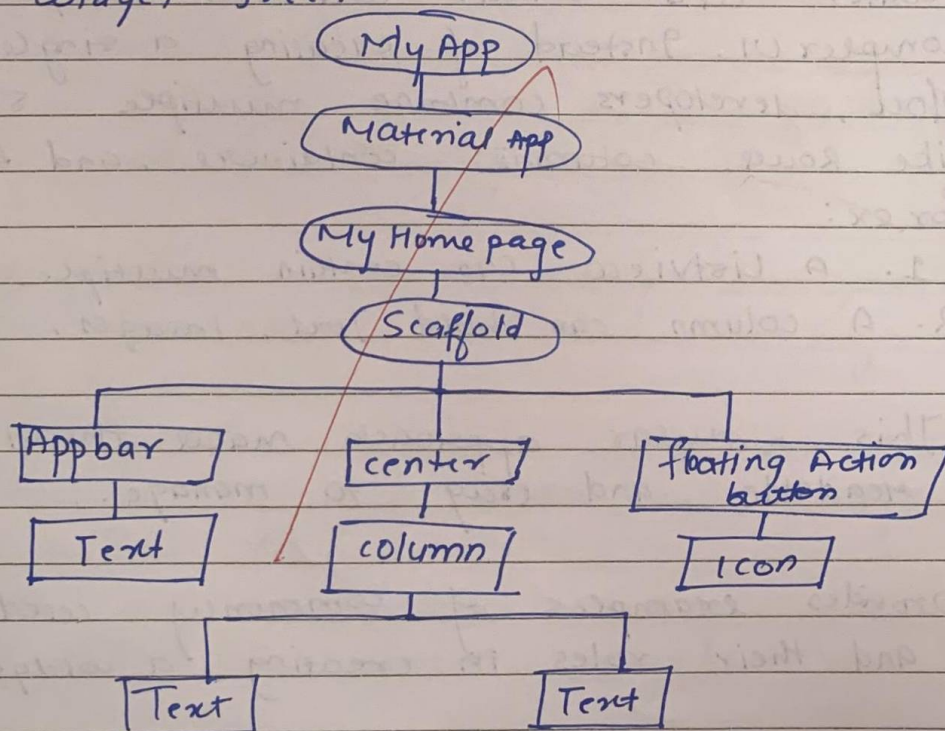 My App
Material App
My Home page
Scaffold
Appbar
center
floating Action
button
Text
column
Icon
Text
Text